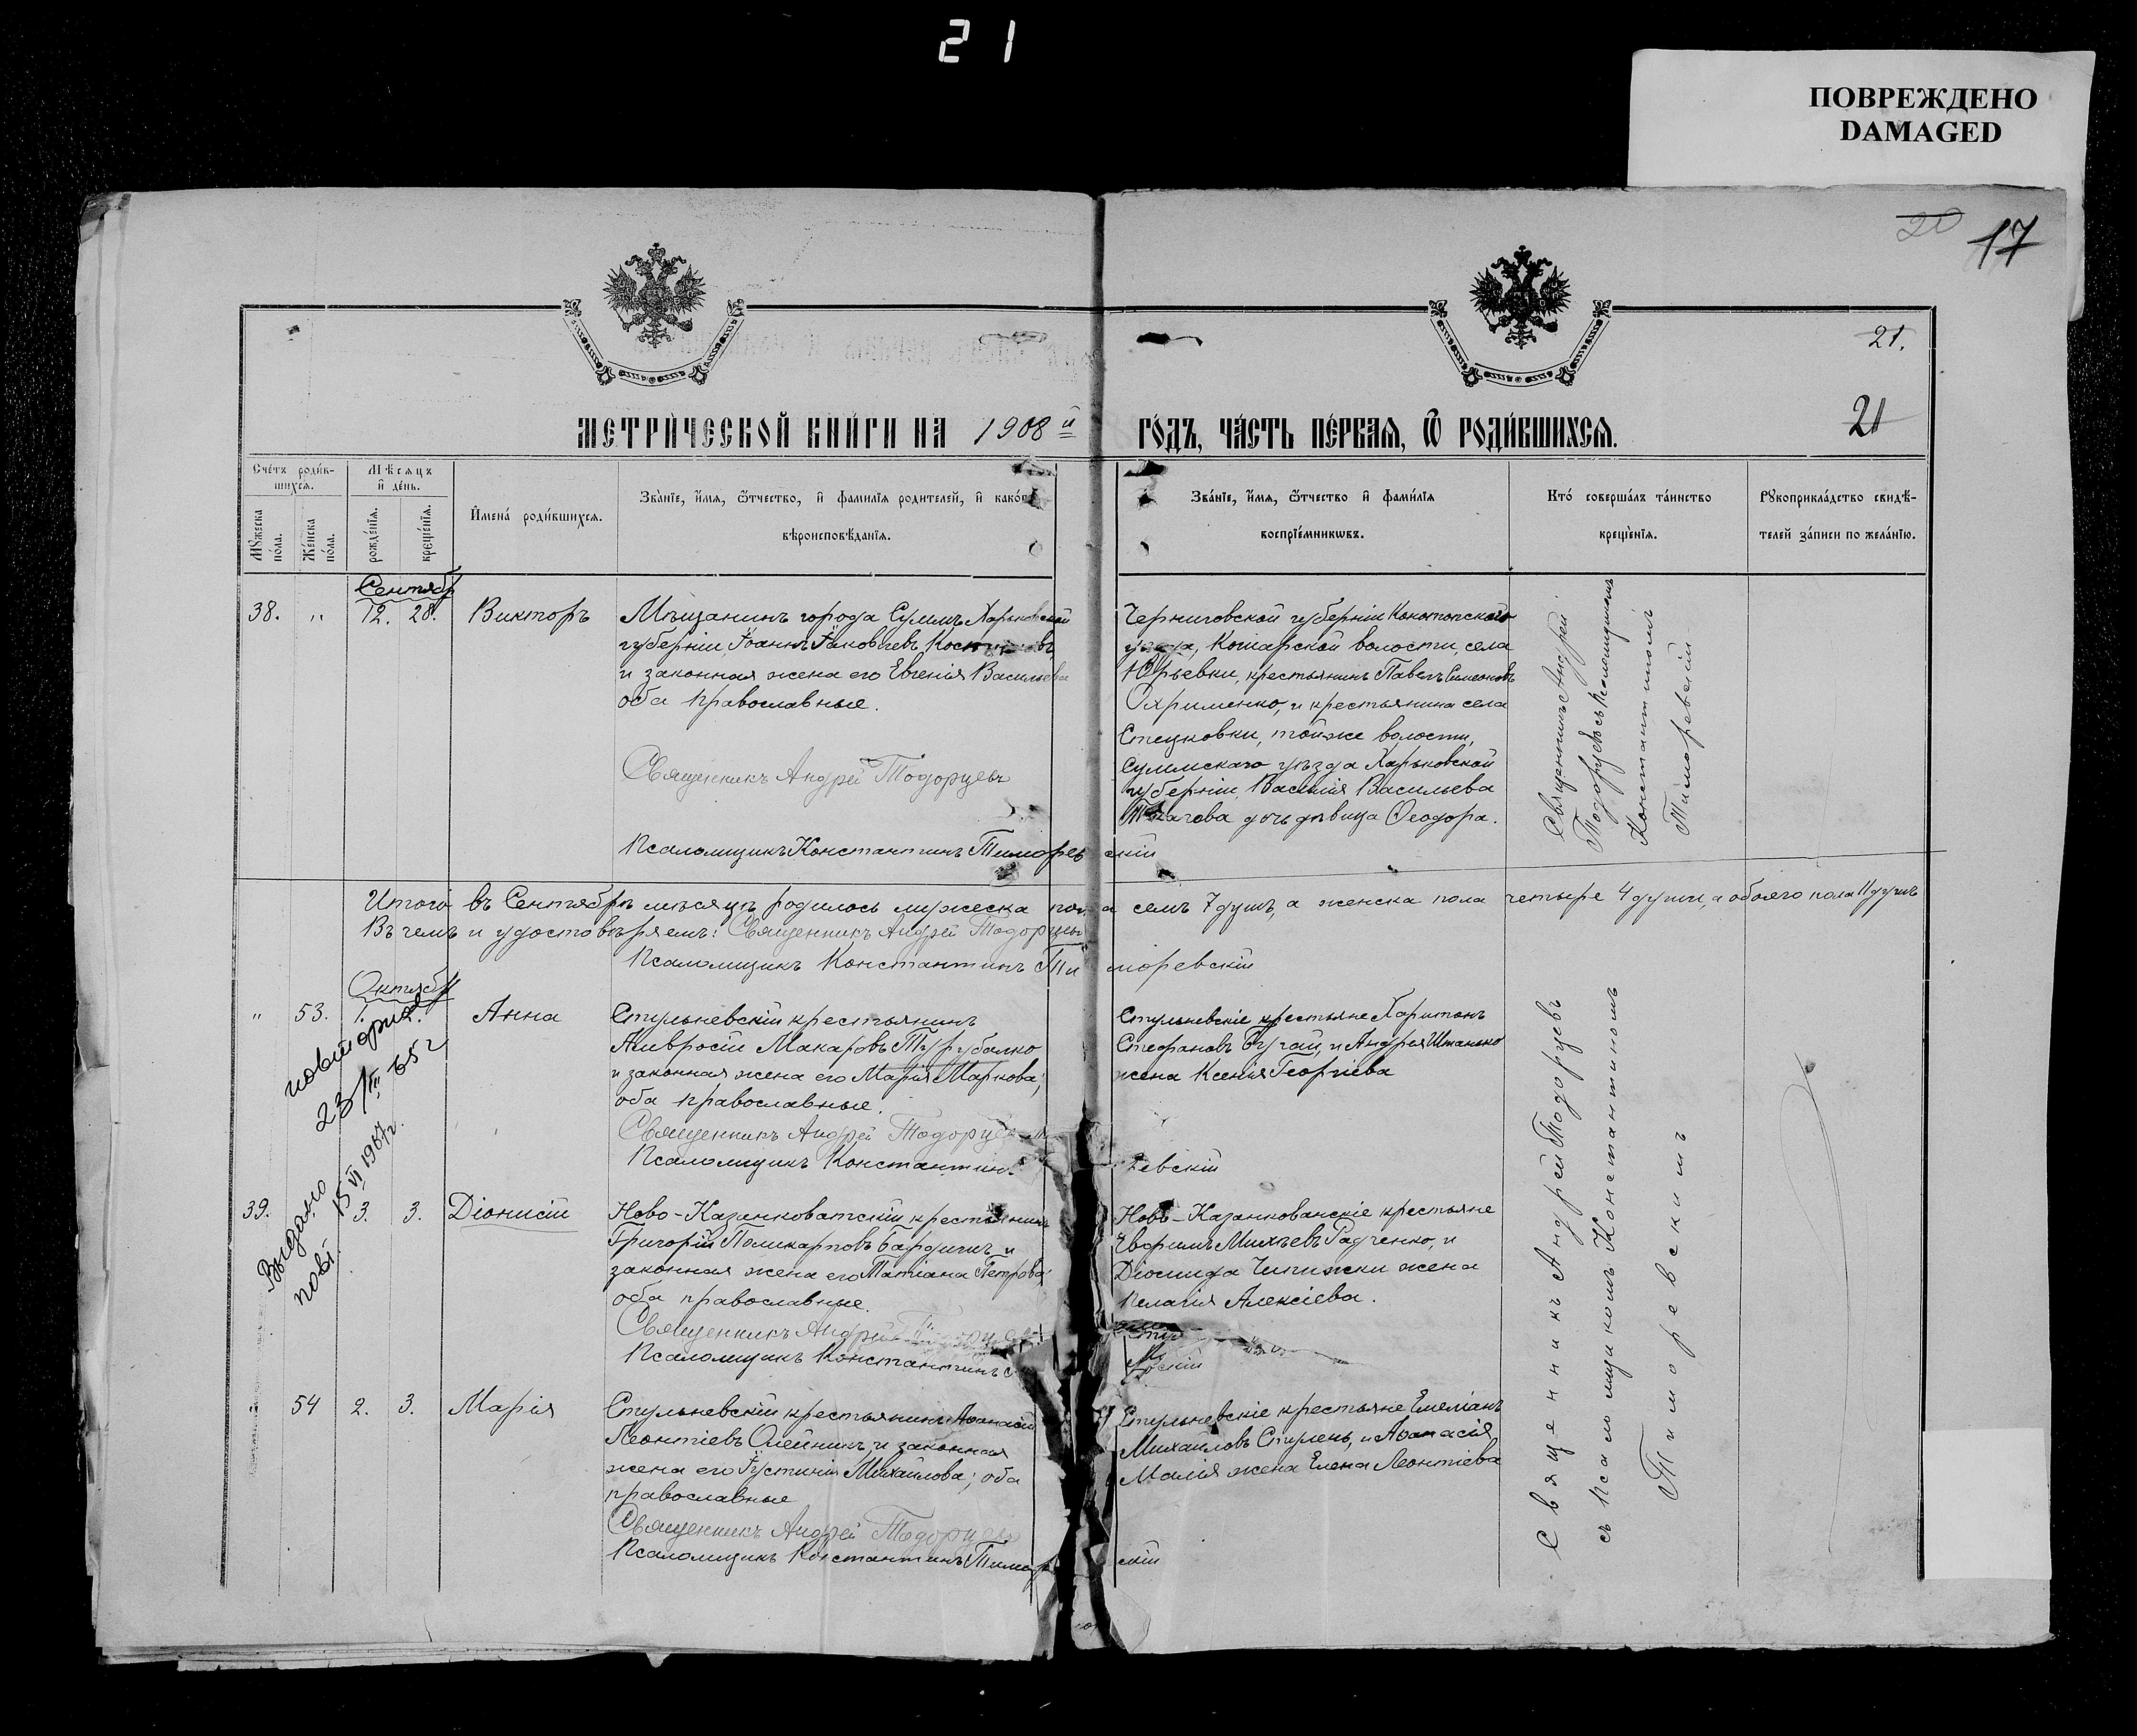 21
ПОВРЕЖДЕНО
DAMAGED
20 17
21.
21
МЕТРИ́ЧЕСКОЙ КНИ́ГИ НА 1908й ГО́ДЪ, ЧА́СТЬ ПЕ́РВАЯ, Ѿ РОДИ́ВШИХСЯ.
Сче́тъ роди́в-
шихся.
Мꙋ́жеска по́ла.
Же́нска по́ла.
Мѣ́сяцъ
и҆ де́нь.
рожде́нїя.
креще́нїя.
И҆мена̀ роди́вшихся.
Зва́нїе, и҆́мя, ѻ҆́тчество, и҆ фами́лїя родителей, и҆ како́гѡ
вѣроисповѣ́данїя.
Зва́нїе, и҆́мя, ѻ҆́тчество и҆ фами́лїя
воспрїе́мникѡвъ.
Кто̀ соверша́лъ та́инство
креще́нїя.
Рꙋкоприкла́дство свидѣ́-
телей за́писи по жела́нїю.
Сентябр
38. „ 12. 28. Викторъ
Мѣщанинъ города Сумъ Харьковской
губерніи, Іоаннъ Іаковлевъ
и законная жена его Евгенія Васильева
оба православные.
Священникъ Андрей Тодорцевъ
Псаломщикъ Константинъ Тиморевскій
Черниговской губерніи Конотопскаго
уѣзда, Кошарской волости, села
Юрьевки, крестьянинъ Павелъ Симеоновъ
Охрименко, и крестьянина села
Стецковки, тойже волости,
Сумскаго уѣзда Харьковской
губерніи, Василія Васильева
Ткачева дочь дѣвица Ѳеодора.
Священникъ Андрей
Тодорцевъ съ Псаломщикомъ
Константиномъ
Тиморевскій
Итого въ Сентябрѣ мѣсяцѣ родилось мужеска пола семъ 7 душъ, а женска пола четыре 4 души, а обоего пола 11 душъ
Въ чемъ и удостовѣряемъ: Священникъ Андрей Тодорцевъ
Псаломщикъ Константинъ Тиморевскій
Октябр
„ 53. 1. 2. Анна
Стульневскій крестьянинъ
Амвросій Макаровъ Турубалко
и законная жена его Марія Маркова;
оба православные.
Священникъ Андрей Тодорцевъ
Псаломщикъ Константинъ ревскій
Стульневскіе крестьяне Харитонъ
Стефановъ Бугай, и Андрея Штанько
жена Ксенія Георгіева
повторная
23/III 65 г
Выдано 15 VI 1967г.
повт
39. „ 3. 3. Діонисій
Ново-Казанковатскій крестьянинъ
Григорій Поликарповъ Бардинъ и
законная жена его Татіана Петрова;
оба православные.
Священникъ Андрей
Псаломщикъ Константинъ скій
Ново-Казанкованскіе крестьяне
Ефремъ Радченко, и
Діомида Чипижки жена
Пелагія Алексіева.
„ 54 2. 3. Марія
Стульневскій крестьянинъ Аѳанасій
Леонтіевъ Олейникъ, и законная
жена его Іустинія Михайлова; оба
православные
Священникъ Андрей Тодорцевъ
Псаломщикъ Константинъ Тиморевскій
Стульневскіе крестьяне Емеліанъ
Михайловъ Стулень, и Аѳанасія
Малія жена Елена Леонтіева
Священникъ Андрей Тодорцевъ
съ Псаломщикомъ Константиномъ
Тиморевскимъ